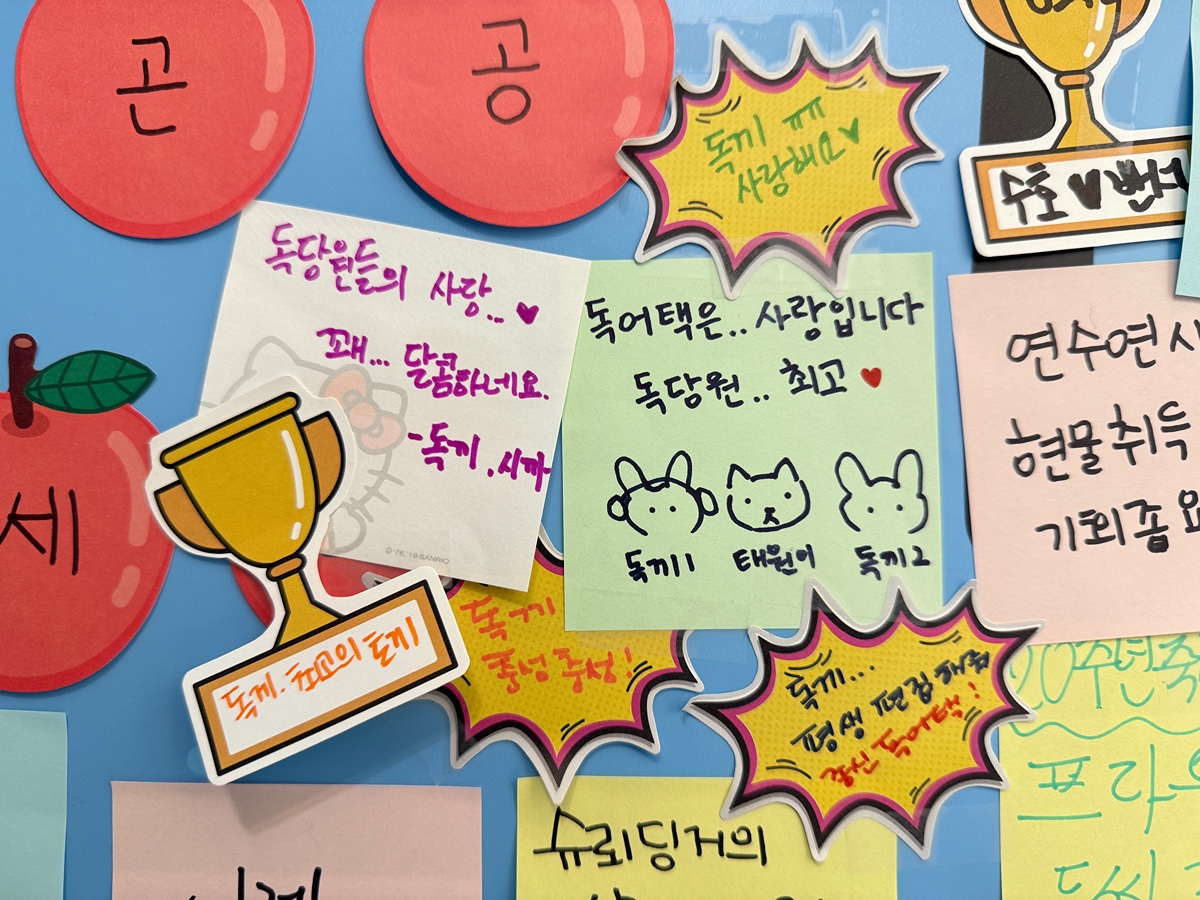 곤
공
독끼 ㅠㅠ
사랑해요♥
수호♥
독당원들의 사랑..♥
꽤... 달콤하네요.
-독끼.시까
© '76, '19 SANRIO
독어택은..사랑입니다
독당원.. 최고♥
독끼1 태원이 독끼2
연수연
현물취득
기회좀
세
독께. 최고의 토끼
독끼
충성충성!
독끼..
평생 편집해줘
갱신 독어택!
20주년축
프라
슈뢰딩거의